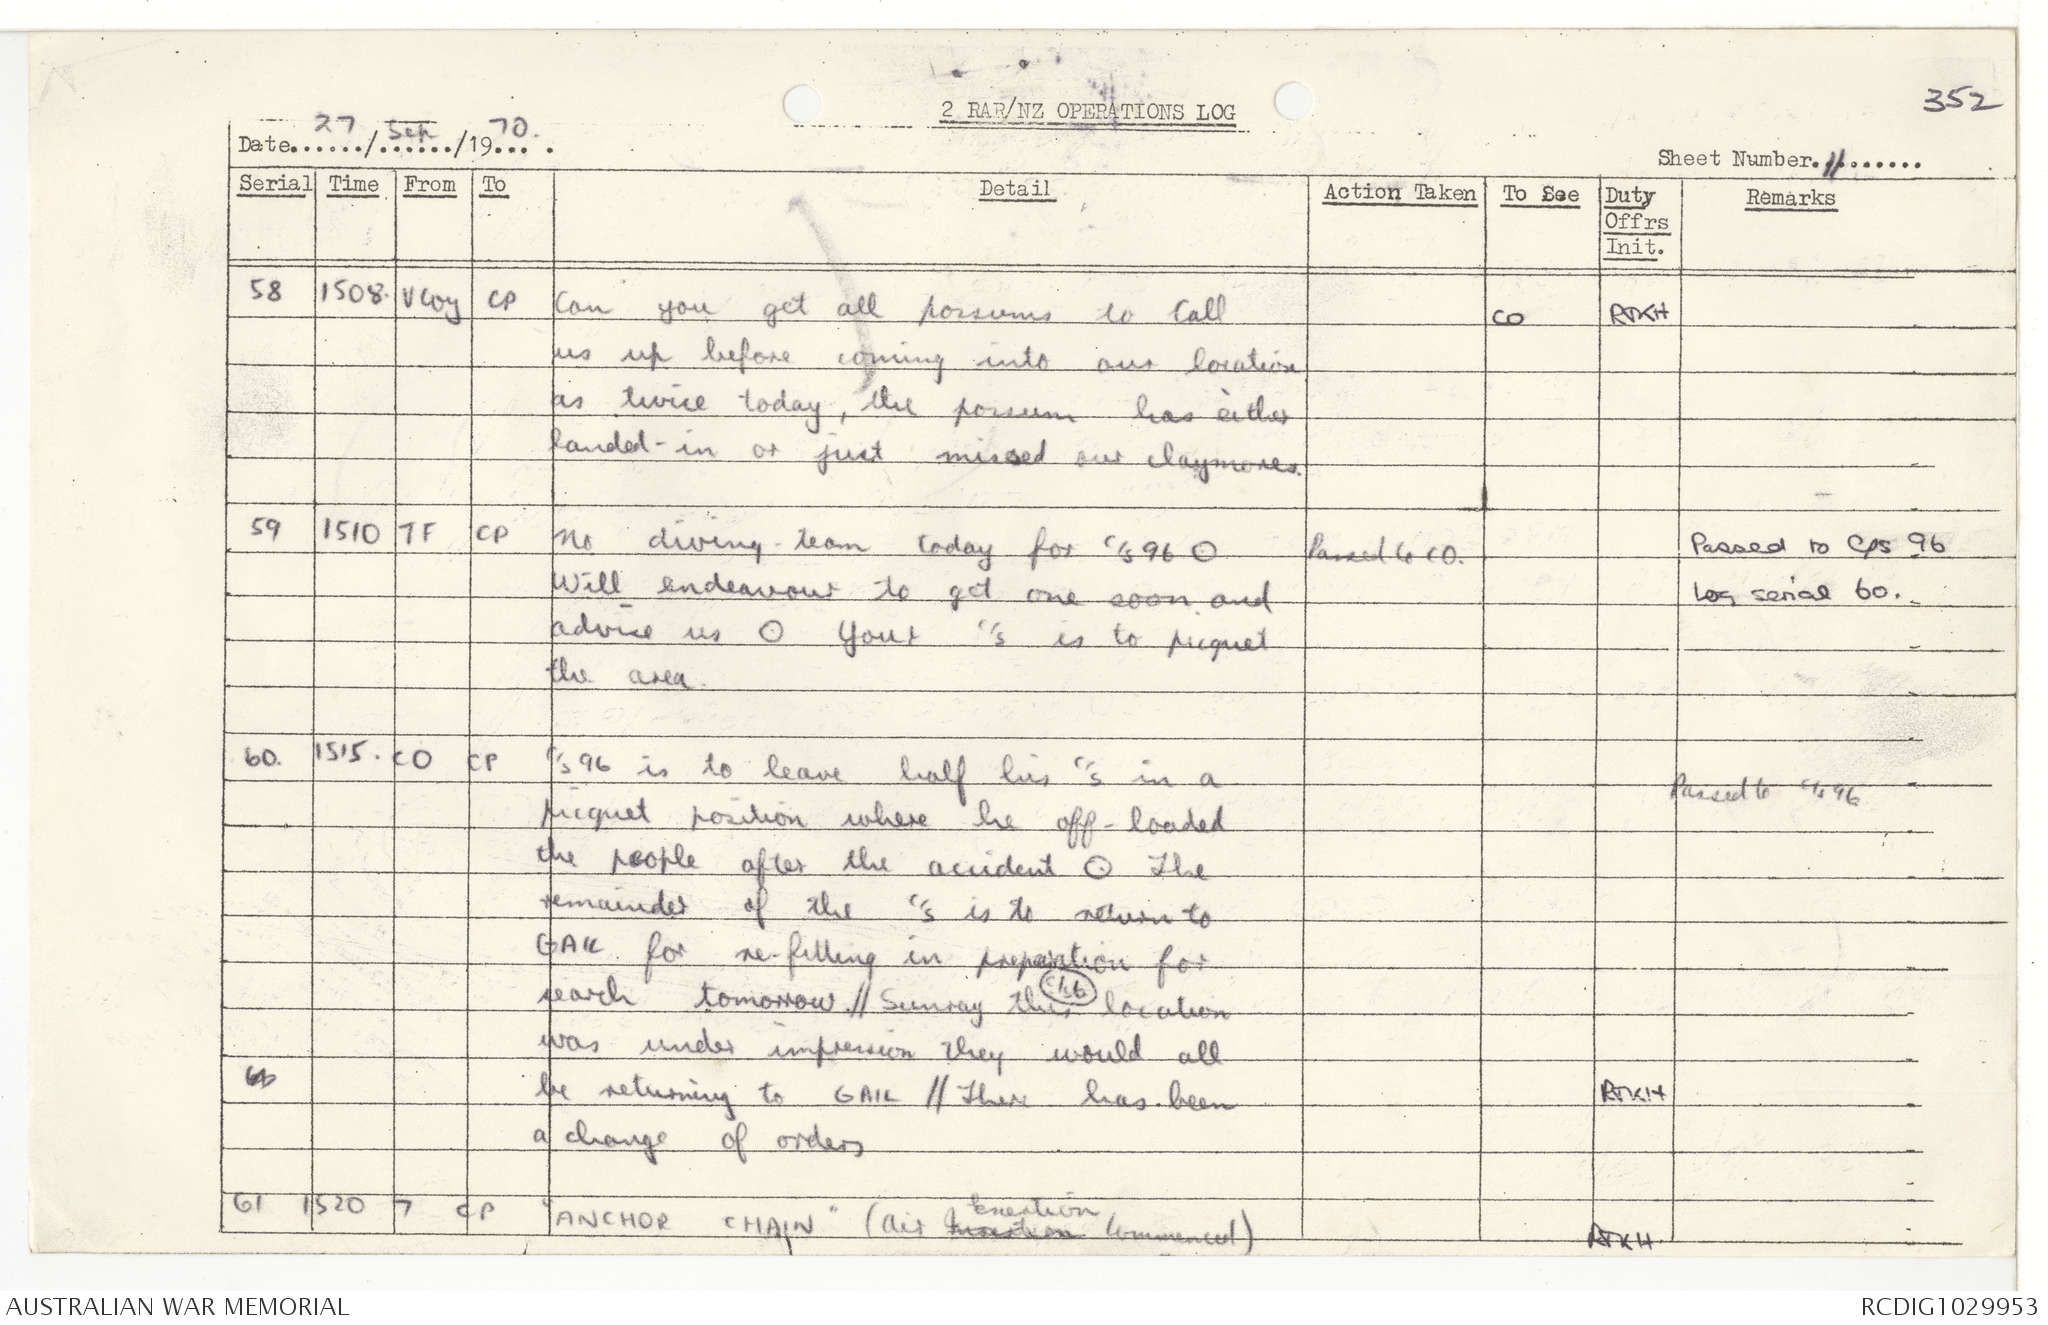 352
2 RAR/NZ OPERATIONS LOG
Date 27/Sep/1970.
Sheet Number 11
Serial Time From To Detail Action Taken To See Duty Offrs Init. Remarks
58 1508. V Coy CP Can you get all possums to Call CO RJKH
us up before coming into our location
as twice today, the possum has either
landed-in or just missed our claymores.
59 1510 TF CP No diving-team today for C/S 96 O Passed to CO. Passed to C/S 96
Will endeavour to get one soon and Log serial 60.
advise us O Your C/S is to picquet
the area.
60. 1515. CO CP C/S 96 is to leave half his C/S in a Passed to C/S 96
picquet position where he off-loaded
the people after the accident O The
remainder of the C/S is to return to
GAIL for re-filling in preparation for
search tomorrow // Sunray this location
was under impression they would all
be returning to GAIL // There has been RJKH
a change of orders
61 1520 7 CP "ANCHOR CHAIN" (Air Insertion Exertion Commenced) RJKH
AUSTRALIAN WAR MEMORIAL RCDIG1029953